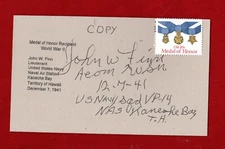 COPY
Medal of Honor Recipient
World War II
John W. Finn
Lieutenant
United States Navy
Naval Air Station
Kaneohe Bay
Territory of Hawaii
December 7, 1941
Medal of Honor
John W Finn
Acom USN
12-7-41
US Navy Sqd VP-14
NAS Kaneohe Bay
T.H.